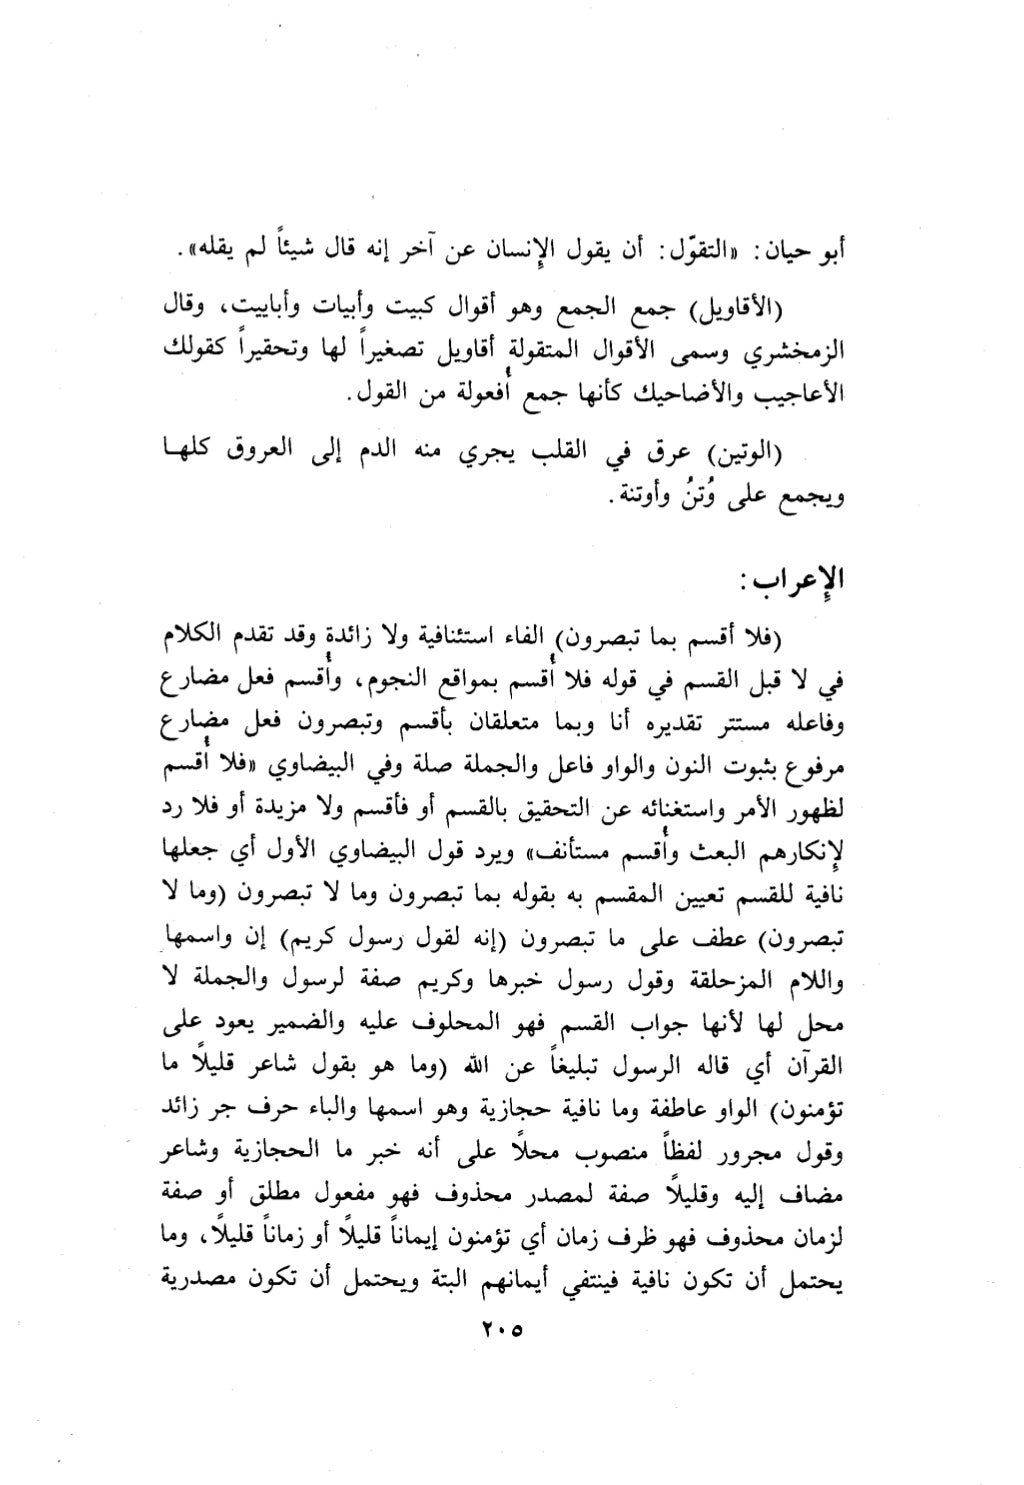 أبو حيان: «التقوّل: أن يقول الإنسان عن آخر إنه قال شيئاً لم يقله».
(الأقاويل) جمع الجمع وهو أقوال كبيت وأبيات وأباييت، وقال
الزمخشري وسمى الأقوال المتقولة أقاويل تصغيراً لها وتحقيراً كقولك
الأعاجيب والأضاحيك كأنها جمع أُفعولة من القول.
(الوتين) عرق في القلب يجري منه الدم إلى العروق كلها
ويجمع على وُتنُ وأوتنة.
الإعراب:
(فلا أقسم بما تبصرون) الفاء استئنافية ولا زائدة وقد تقدم الكلام
في لا قبل القسم في قوله فلا أُقسم بمواقع النجوم، وأُقسم فعل مضارع
وفاعله مستتر تقديره أنا وبما متعلقان بأقسم وتبصرون فعل مضارع
مرفوع بثبوت النون والواو فاعل والجملة صلة وفي البيضاوي «فلا أُقسم
لظهور الأمر واستغنائه عن التحقيق بالقسم أو فأقسم ولا مزيدة أو فلا رد
لإنكارهم البعث وأُقسم مستأنف» ويرد قول البيضاوي الأول أي جعلها
نافية للقسم تعيين المقسم به بقوله بما تبصرون وما لا تبصرون (وما لا
تبصرون) عطف على ما تبصرون (إنه لقول رسول كريم) إن واسمها
واللام المزحلقة وقول رسول خبرها وكريم صفة لرسول والجملة لا
محل لها لأنها جواب القسم فهو المحلوف عليه والضمير يعود على
القرآن أي قاله الرسول تبليغاً عن الله (وما هو بقول شاعر قليلًا ما
تؤمنون) الواو عاطفة وما نافية حجازية وهو اسمها والباء حرف جر زائد
وقول مجرور لفظاً منصوب محلًا على أنه خبر ما الحجازية وشاعر
مضاف إليه وقليلًا صفة لمصدر محذوف فهو مفعول مطلق أو صفة
لزمان محذوف فهو ظرف زمان أي تؤمنون إيماناً قليلًا أو زماناً قليلًا، وما
يحتمل أن تكون نافية فينتفي أيمانهم البتة ويحتمل أن تكون مصدرية
٢٠٥